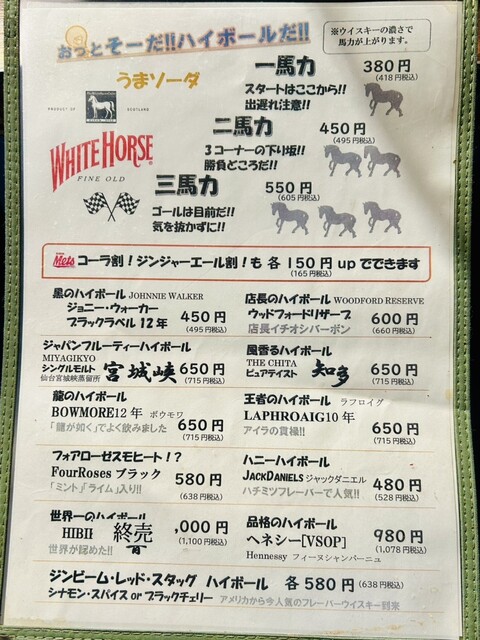 おっとそーだ!!ハイボールだ!!
※ウイスキーの濃さで
馬力が上がります。
うまソーダ
一馬力 380円
(418円税込)
スタートはここから!!
出遅れ注意!!
PRODUCT OF SCOTLAND
WHITE HORSE
FINE OLD
二馬力 450円
(495円税込)
3コーナーの下り坂!!
勝負どころだ!!
三馬力 550円
(605円税込)
ゴールは目前だ!!
気を抜かずに!!
Mets コーラ割!ジンジャーエール割!も 各150円 upでできます
(165円税込)
黒のハイボール JOHNNIE WALKER
ジョニー・ウォーカー
ブラックラベル 12年 450円
(495円税込)
店長のハイボール WOODFORD RESERVE
ウッドフォードリザーブ 600円
店長イチオシバーボン (660円税込)
ジャパンフルーティーハイボール
MIYAGIKYO
シングルモルト 宮城峡 650円
仙台宮城峡蒸留所 (715円税込)
風香るハイボール
THE CHITA
ピュアテイスト 知多 650円
(715円税込)
龍のハイボール
BOWMORE12年 ボウモワ 650円
「龍が如く」でよく飲みました (715円税込)
王者のハイボール ラフロイグ
LAPHROAIG10年 650円
アイラの貫禄!! (715円税込)
フォアローゼスモヒート!?
FourRoses ブラック 580円
「ミント」「ライム」入り!! (638円税込)
ハニーハイボール
JACKDANIELS ジャックダニエル 480円
ハチミツフレーバーで人気!! (528円税込)
世界一のハイボール
HIBI 終売 ,000円
世界が認めた!! (1,100円税込)
品格のハイボール
ヘネシー[VSOP] 980円
Hennessy フィーヌシャンパーニュ (1,078円税込)
ジンビーム・レッド・スタッグ ハイボール 各580円 (638円税込)
シナモン・スパイス or ブラックチェリー アメリカから今人気のフレーバーウイスキー到来